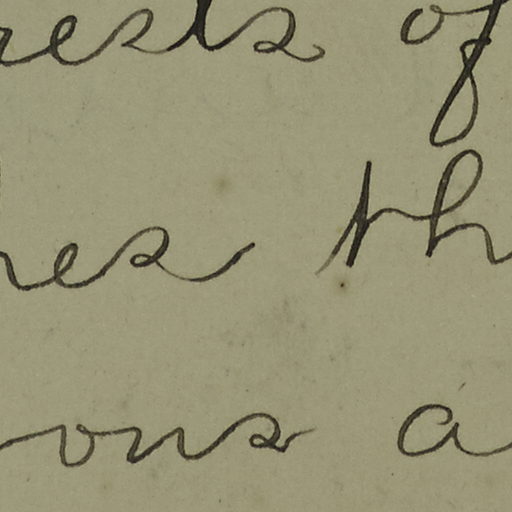 rests of
nes th
ons a